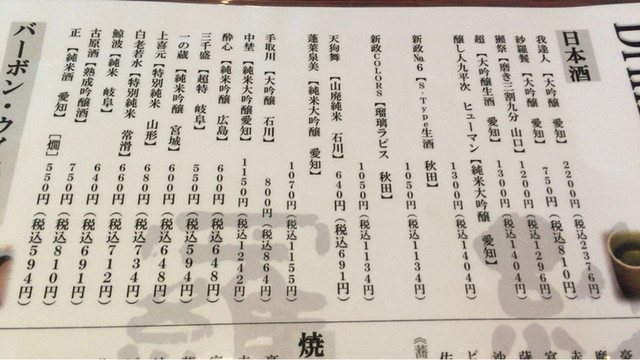 日本酒
我達人【大吟醸 愛知】 2200円(税込2376円)
紗羅餐【大吟醸 愛知】 750円(税込810円)
獺祭【磨き三割九分 山口】 1200円(税込1296円)
超【大吟醸生酒 愛知】 1300円(税込1404円)
醸し人九平次 ヒューマン【純米大吟醸 愛知】 1300円(税込1404円)
新政№6【S-Type生酒 秋田】 1050円(税込1134円)
新政COLORS【瑠璃ラピス 秋田】 1050円(税込1134円)
天狗舞【山廃純米 石川】 640円(税込691円)
蓬莱泉美【純米大吟醸 愛知】 1070円(税込1155円)
手取川【大吟醸 石川】 800円(税込864円)
中埜【純米大吟醸愛知】 1150円(税込1242円)
酔心【純米吟醸 広島】 600円(税込648円)
三千盛【超特 岐阜】 550円(税込594円)
一の蔵【純米吟醸 宮城】 600円(税込648円)
上喜元【特別純米 山形】 680円(税込734円)
白老若水【特別純米 常滑】 660円(税込712円)
鯨波【純米 岐阜】 640円(税込691円)
古原酒【熟成吟醸酒】 750円(税込810円)
正【純米酒 愛知】 [燗] 550円(税込594円)
バーボン・ウイ
焼